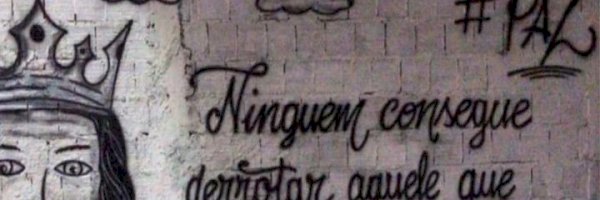 #PAZ
Ninguem consegue
derrotar aquele que